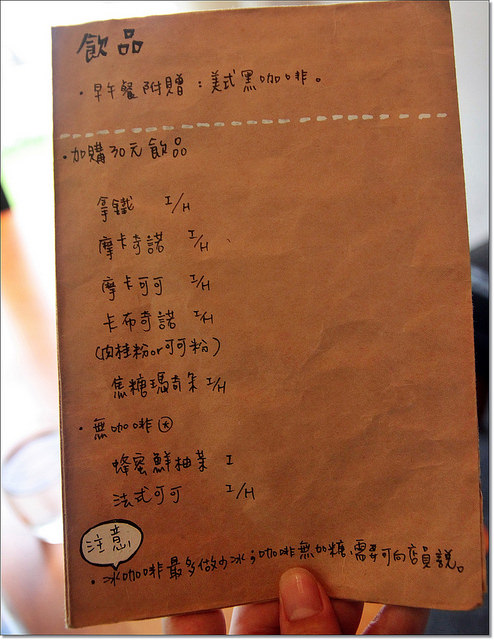 飲品
·早午餐附贈：美式黑咖啡。
·加購30元飲品
拿鐵 I/H
摩卡奇諾 I/H
摩卡可可 I/H
卡布奇諾 I/H
(肉桂粉or可可粉)
焦糖瑪奇朵 I/H
·無咖啡
蜂蜜鮮柚茶 I
法式可可 I/H
注意
·冰咖啡最多做少冰；咖啡無加糖，需要可向店員說。